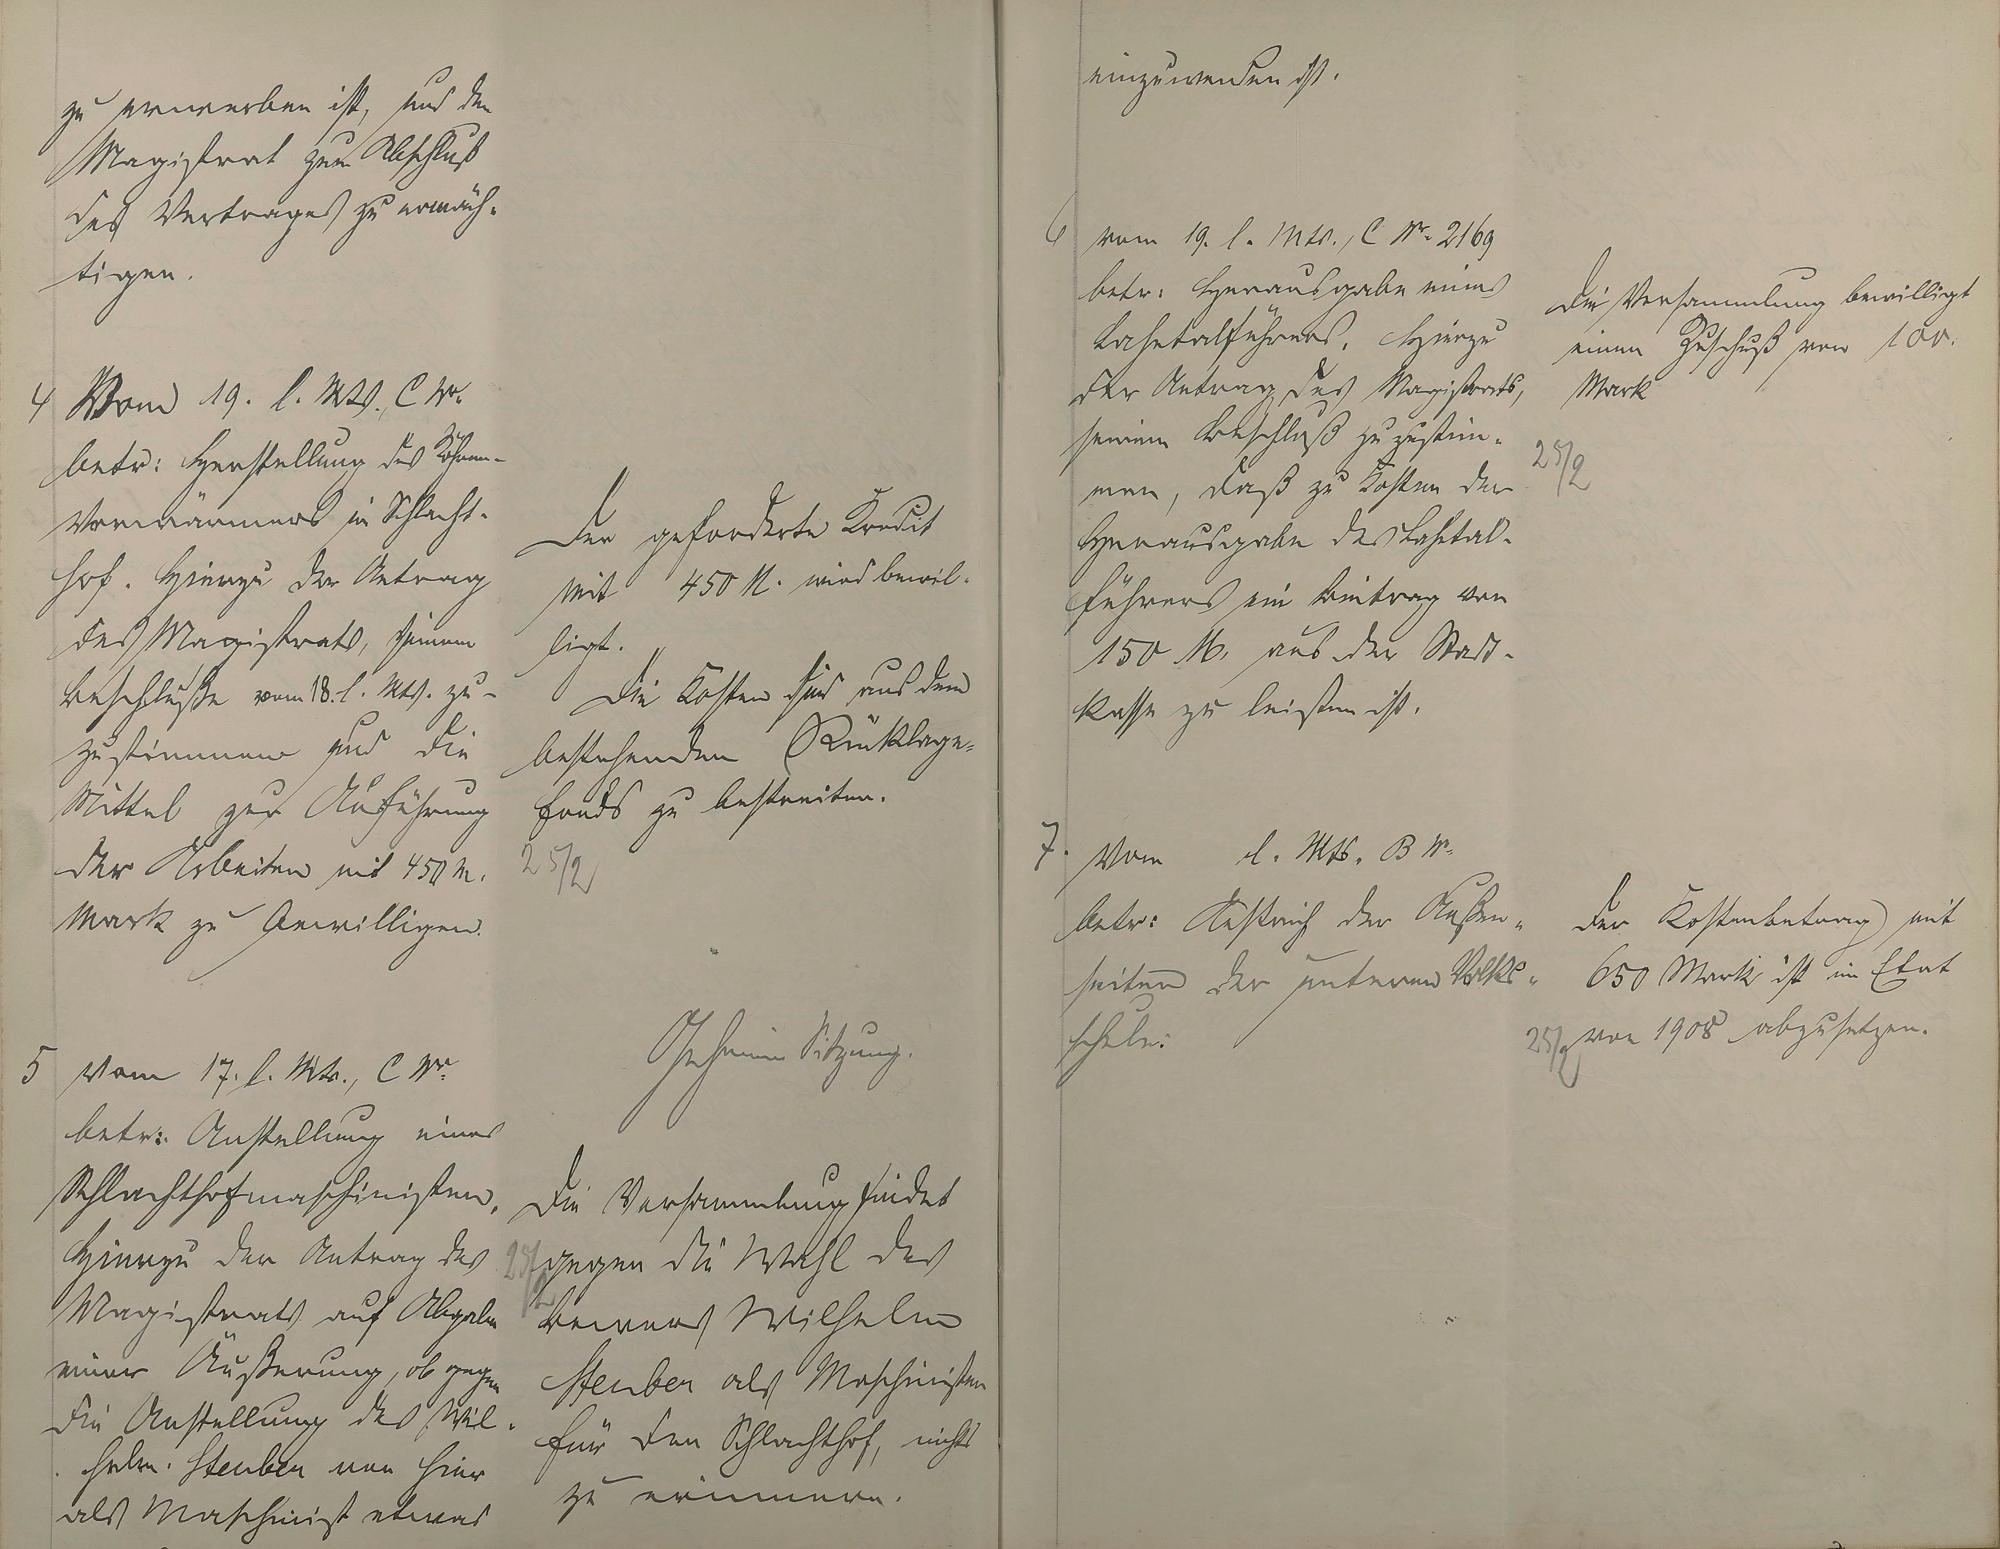 zu erwerben ist, und den
Magistrat zum Abschluß
des Vertrages zu ermäch-
tigen.
4 Vom 19. l. Mts., C Nr.
betr: Herstellung des
Vorwärmers in Schlacht-
hof. Hierzu der Antrag
des Magistrats, seinem
Beschluße vom 18. l. Mts. zu-
zustimmen und die
Mittel zur Ausführung
der Arbeiten mit 450 M.
Mark zu bewilligen.
Der geforderte Kredit
mit 450 M. wird bewil-
ligt.
Die Kosten sind aus dem
bestehenden Rücklage-
fonds zu bestreiten.
25/2
5 Vom 17. l. Mts., C Nr.
betr: Anstellung eines
Schlachthofmaschinisten,
Hierzu der Antrag des
Magistrats auf Abgabe
einer Äußerung, ob gegen
die Anstellung des Wil-
helm Steuber von hier
als Maschinist etwas
Geheime Sitzung.
Die Versammlung findet
25/2 gegen die Wahl des
Wilhelm
Steuber als Maschinisten
für den Schlachthof, nichts
zu erinnern.
einzuwenden ist.
6 vom 19. l. Mts., C Nr. 2169
betr: Herausgabe eines
Lahntalführers. Hierzu
der Antrag des Magistrats,
seinem Beschluß zuzustim-
men, daß zu Kosten der
Herausgabe des Lahntal-
führers ein Beitrag von
150 M. aus der Stadt-
kasse zu leisten ist.
Die Versammlung bewilligt
einen Zuschuß von 100.
Mark
25/2
7. Vom l. Mts. B Nr.
betr: Anstrich der Außen-
seiten der unteren Volks-
schule:
Der Kostenbetrag mit
650 Mark ist im Etat
25/2 von 1908 abzusetzen.